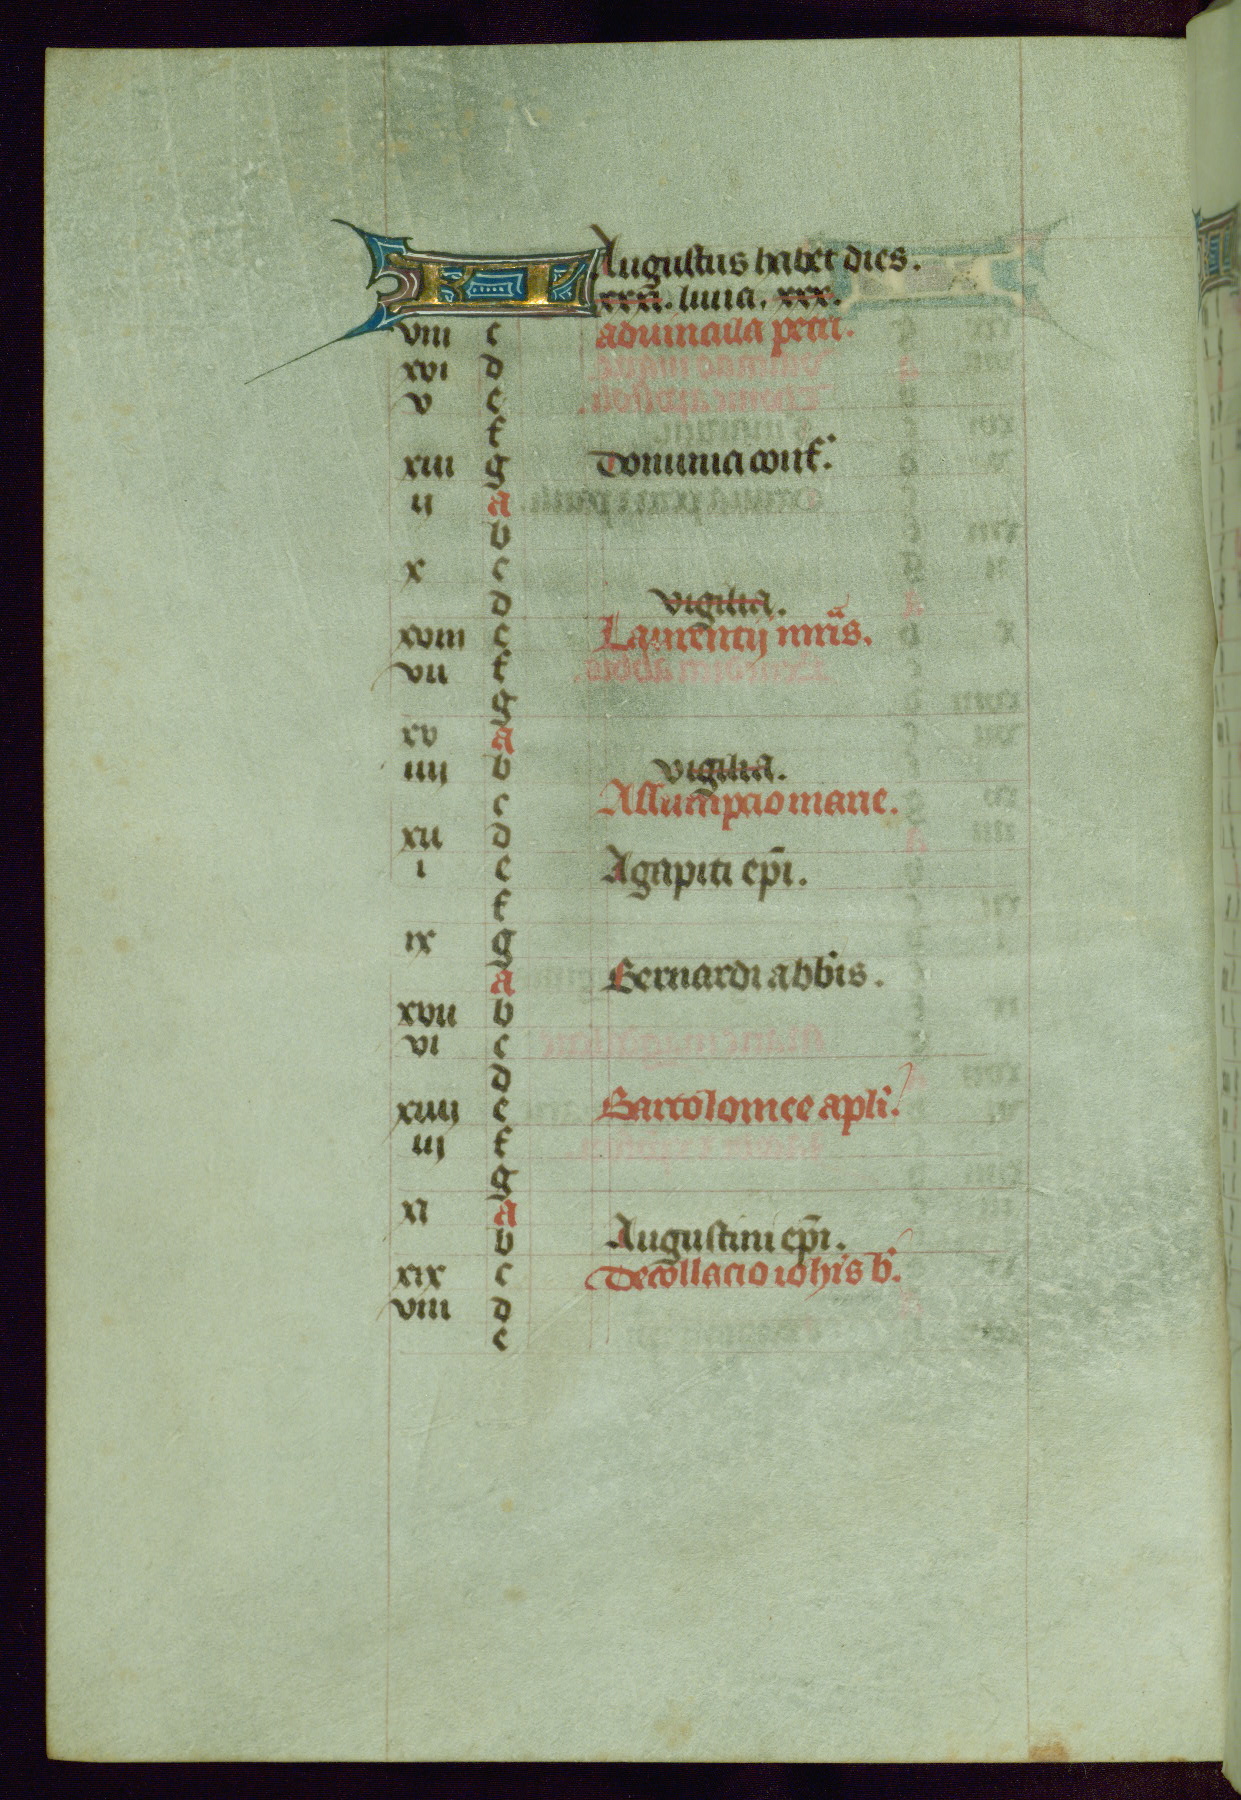 KL Augustus habet dies.
xxxi. luna. xxx.
viii c aduincula petri.
xvi d
v e
f
xiii g Dominici conf.
ii a
b
x c
d vigilia.
xviii e Laurentij mris.
vii f
g
xv a
iiij b vigilia.
c Assumpcio marie.
xii d
i e Agapiti epi.
f
ix g
a Bernardi abbis.
xvii b
vi c
d
xiiij e Bartolomee apli.
iij f
g
xi a
b Augustini epi.
xix c Decollacio iohis b.
viii d
e